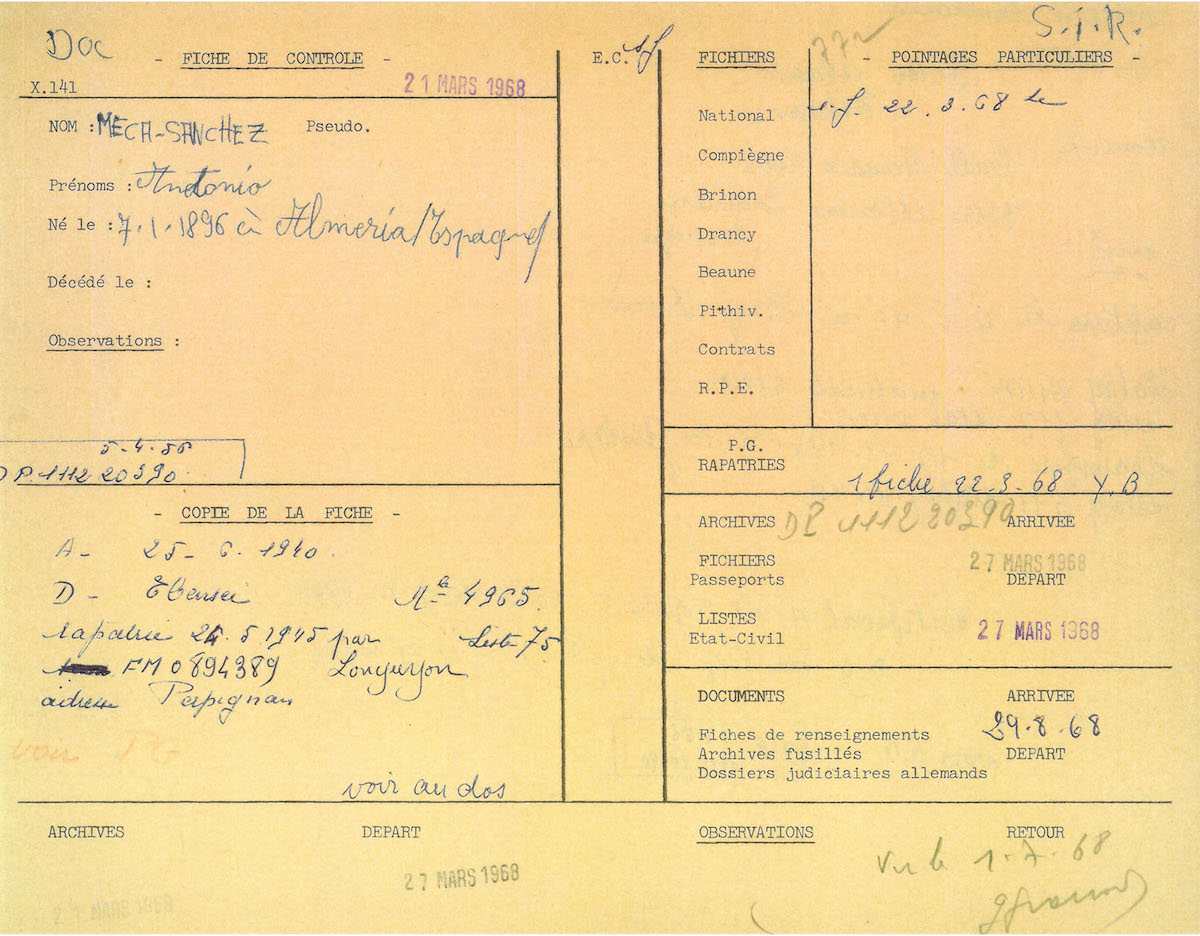 Doc
- FICHE DE CONTROLE -
21 MARS 1968
X.141
NOM : MECA-SANCHEZ Pseudo.
Prénoms : Antonio
Né le : 7.1.1896 à Almeria/Espagne/
Décédé le :
Observations :
5.4.56
DP.1112 20390.
- COPIE DE LA FICHE -
A - 25 - 6. 1940.
D - Ebensee Mle 4965.
rapatrié 24.5 1945 par Liste 75
FM 0894389 Longuyon
adresse Perpignan
voir
voir au dos
E.C.
FICHIERS
S.I.R.
- POINTAGES PARTICULIERS -
National 22.3.68
Compiègne
Brinon
Drancy
Beaune
Pithiv.
Contrats
R.P.E.
P.G.
RAPATRIES
1 fiche 22.3.68 Y.B
ARCHIVES DP 1112 20390 ARRIVEE
FICHIERS 27 MARS 1968
Passeports DEPART
LISTES
Etat-Civil 27 MARS 1968
DOCUMENTS ARRIVEE
Fiches de renseignements 29.8.68
Archives fusillés DEPART
Dossiers judiciaires allemands
ARCHIVES DEPART
27 MARS 1968
21 MARS 1968
OBSERVATIONS RETOUR
Vu le 1.7.68